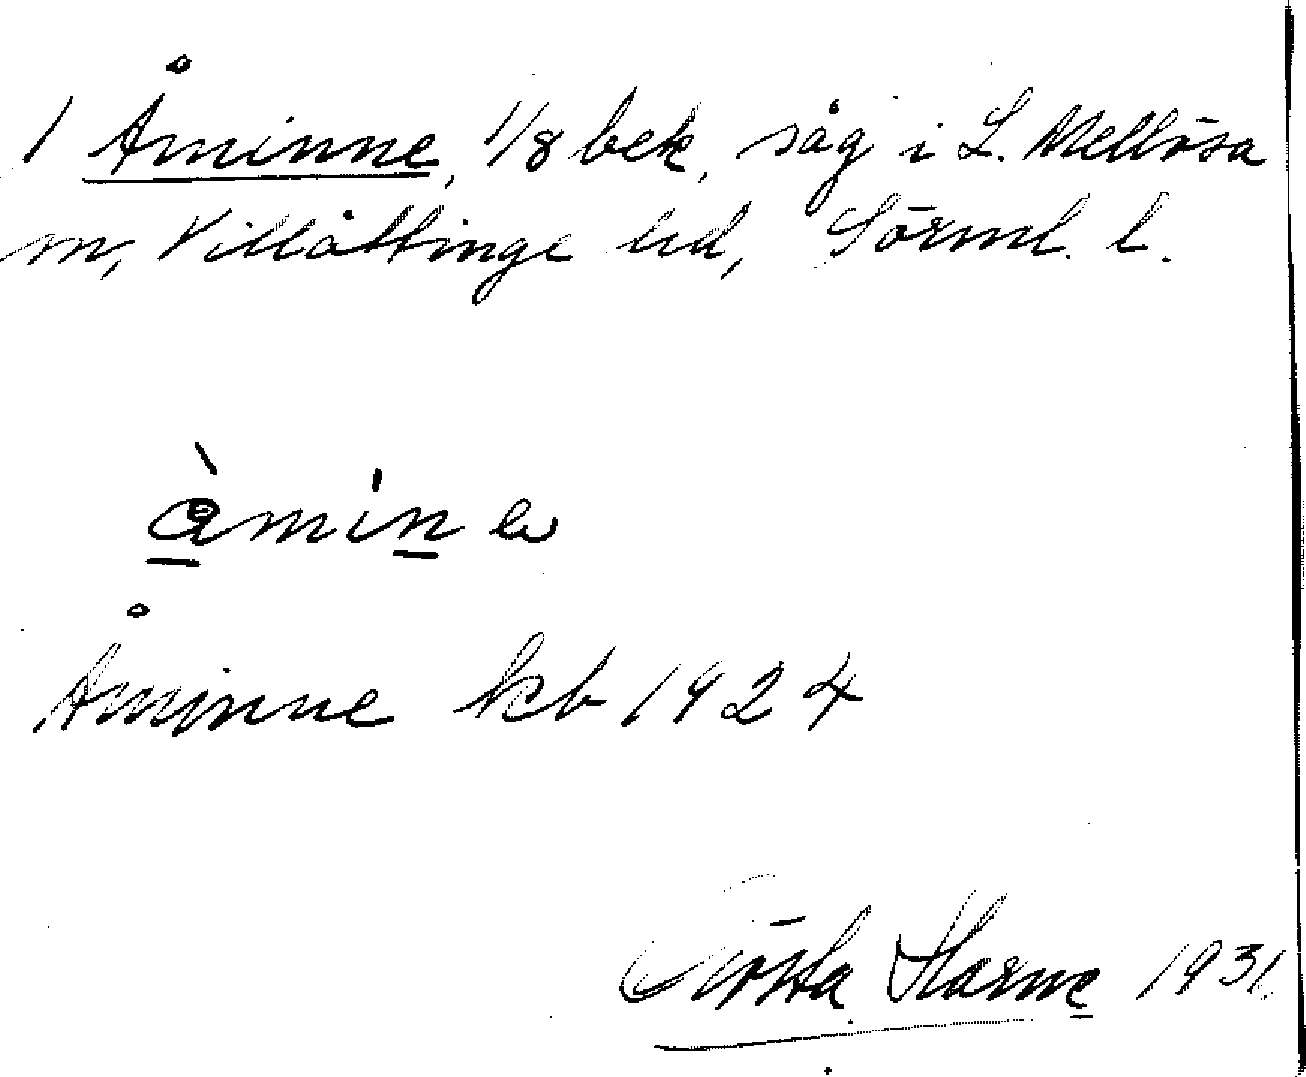 1 Åminne, 1/8 bek, såg i L. Mellösa
sn, Villåttinge hd, Sörml. l.
åmine
Åminne kb 1924
Gösta 1931.